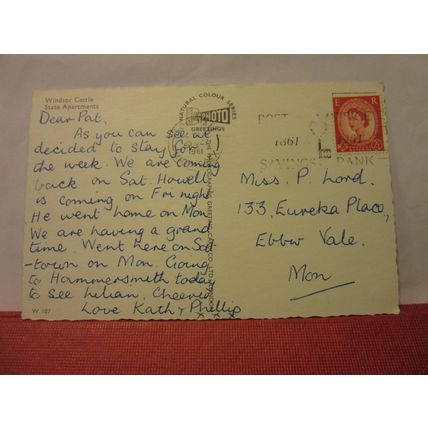 Windsor Castle
State Apartments
Dear Pat.
As you can see at
decided to stay for
the week. We are coming
back on Sat. Howell
is coming on Fri night
He went home on Mon
We are having a grand
time. Went here on Sat
-town on Mon. Going
to Hammersmith today
to see Lilian. Cheerio
Love Kath & Phillip
x x x x
W 107
NATURAL COLOUR SERIES
PHOTO
GREETINGS
E R
POST
1961
SAVINGS BANK
Miss. P. Lord.
133, Eureka Place,
Ebbw Vale.
Mon